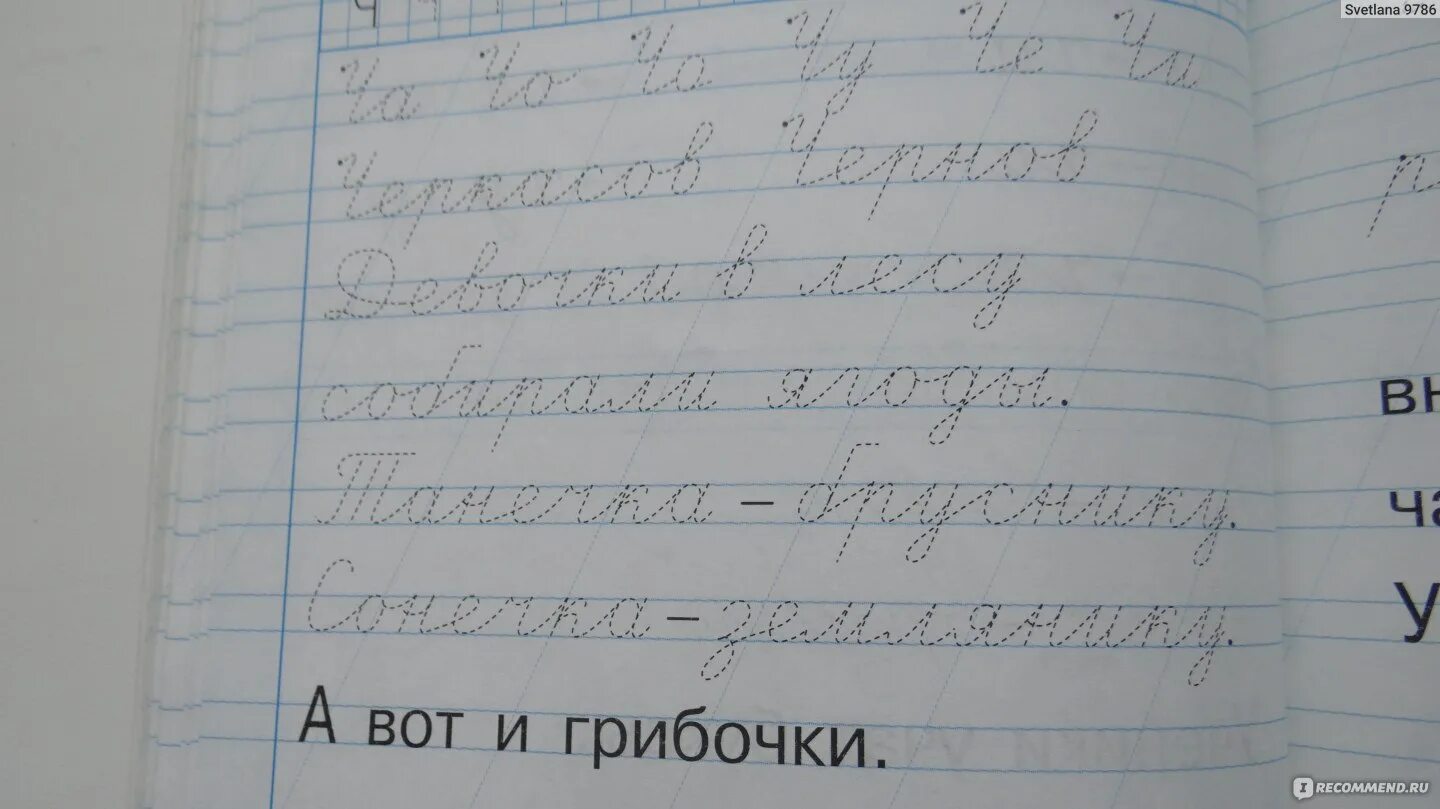 Svetlana 9786
Ча Чо Чо Чу Че Чи
Черкасов Чернов
Девочки в лесу
собирали ягоды.
Танечка – бруснику.
Сонечка – землянику.
А вот и грибочки.
вн
ча
У
IRECOMMEND.RU